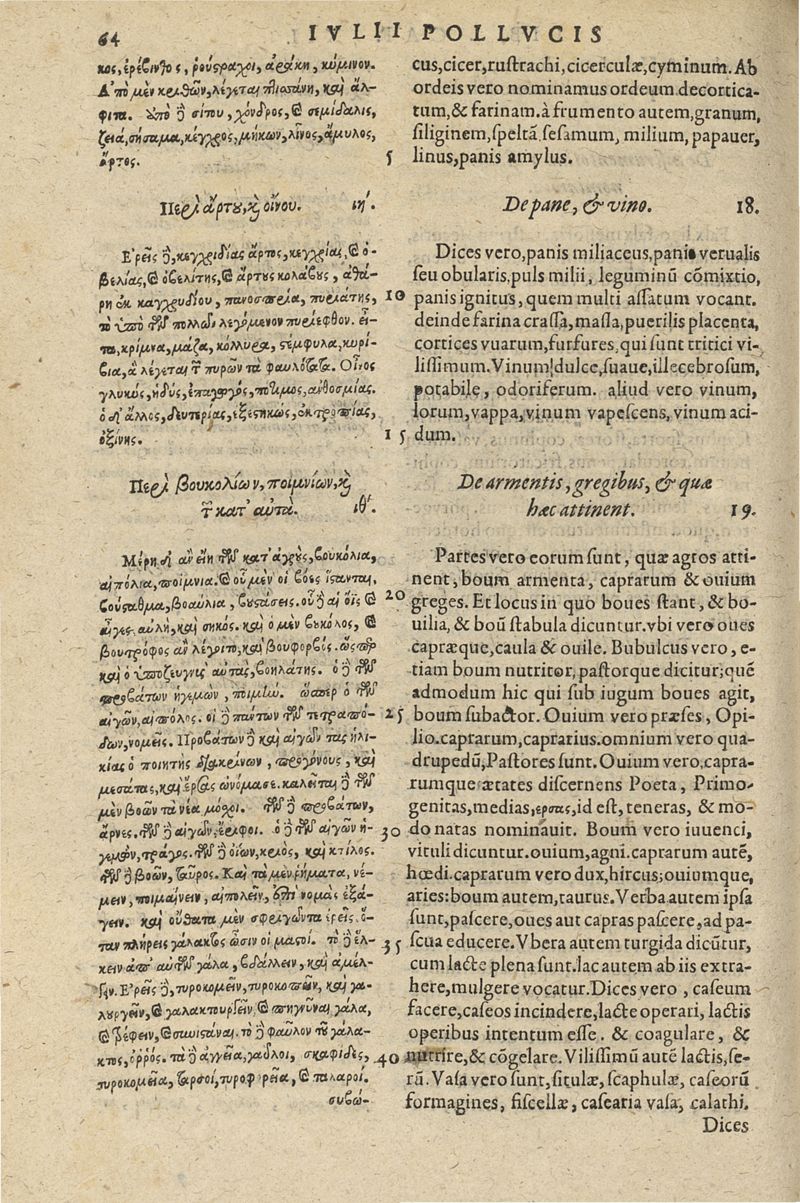 64 IVLII POLLVCIS
κος, ἐρέβινθος, ῥούσραχοι, ἀράκη, κύμινον.
Α᾿πὸ μὲν κριθῶν, λέγεται πτισάνη, καὶ ἄλ-
φιτα. ἀπὸ δὲ σίτου, χόνδρος, καὶ σεμίδαλις,
ζειά, σήσαμα, κέγχρος, μήκων, λίνος, ἄμυλος,
ἄρτος.
Περὶ ἄρτου, καὶ οἴνου. ιηʹ.
Ε᾿ρεῖς δὲ, κεγχριδίας ἄρτος, κεγχρίας, καὶ ὀ-
βελίας, καὶ ὀβελίτης, καὶ ἄρτους κολάβους, ἀθά-
ρη ἐκ καγχρυδίου, πανοσπρεία, πυρλάτης,
τὸ ὑπὸ τῶν πολλῶν λεγόμενον πυρίεφθον. εἶ-
τα, κρίμνα, μάζα, κόλλυρα, στέμφυλα, κυρί-
βια, ἃ λέγεται τῶν πυρῶν τὰ φαυλότατα. Οἶνος
γλυκύς, ἡδύς, ἐπαγωγός, πότιμος, ἀνθοσμίας.
ὁ δ' ἄλλος, δευτερίας, ἐξεστηκώς, ἐκτροπίας,
ὀξίνης.
Περὶ βουκολίων, ποιμνίων, καὶ
τῶν κατ' αὐτά. ιθʹ.
Μέρη δ' ἂν εἴη τῶν κατ' ἀγρούς, βουκόλια,
αἰπόλια, ποίμνια. καὶ οὗ μὲν οἱ βόες ἵστανται,
βούσταθμα, βοαύλια, βουστάσεις. οὗ δὲ αἱ ὄϊς καὶ
αἶγες αὐλή, καὶ σηκός. καὶ ὁ μὲν βουκόλος, καὶ
βουτρόφος ἂν λέγοιτο, καὶ βουφορβός. ὥσπερ
καὶ ὁ ὑποζευγνὺς αὐτάς, βοηλάτης. ὁ δὲ τῶν
προβάτων ἡγεμών, ποιμήν. ὥσπερ ὁ τῶν
αἰγῶν, αἰπόλος. οἱ δὲ πάντων τῶν τετραπό-
δων, νομεῖς. Προβάτων δὲ καὶ αἰγῶν τὰς ἡλι-
κίας ὁ ποιητὴς διακρίνων, προγόνους, καὶ
μεσάτας, καὶ ἕρσας ὠνόμασε. καλεῖται δὲ τῶν
μὲν βοῶν τὰ νέα μόχοι. τῶν δὲ προβάτων,
ἄρνες. τῶν δὲ αἰγῶν, ἔριφοι. ὁ δὲ τῶν αἰγῶν ἡ-
γεμών, τράγος. τῶν δὲ οἰῶν, κριός, καὶ κτίλος.
τῶν δὲ βοῶν, ταῦρος. Καὶ τὰ μὲν ῥήματα, νέ-
μειν, ποιμαίνειν, αἰπολεῖν, ἐπὶ νομὰς ἐξά-
γειν. καὶ οὔθατα μὲν σφριγῶντα ἐρεῖς. ὅ-
ταν πλήρεις γάλακτος ὦσιν οἱ μαστοί. τὸ δὲ ἕλ-
κειν ἀπ' αὐτῶν γάλα, βδάλλειν, καὶ ἀμέλ-
γειν. Ε᾿ρεῖς δὲ, τυροκομεῖν, τυροκοπεῖν, καὶ γα-
λουργεῖν, καὶ γαλακτουργεῖν, καὶ πηγνῦναι γάλα,
καὶ τρέφειν, καὶ συνιστάναι. τὸ δὲ φαῦλον τοῦ γάλα-
κτος, ὀρρός. τὰ δὲ ἀγγεῖα, γαυλοί, σκαφίδες,
τυροκομεῖα, ταρσοί, τυροφορεῖα, καὶ τάλαροι.
συβω-
cus, cicer, rustrachi, cicerculæ, cyminum. Ab
ordeis vero nominamus ordeum decortica-
tum, & farinam. à frumento autem, granum,
siliginem, speltã. sesamum, milium, papauer,
5 linus, panis amylus.
De pane, & vino. 18.
Dices vero, panis miliaceus, panis verualis
seu obularis, puls milii, leguminũ cõmixtio,
10 panis ignitus, quem multi assatum vocant.
deinde farina crassa, massa, puerilis placenta,
cortices vuarum, furfures, qui sunt tritici vi-
lissimum. Vinum dulce, suaue, illecebrosum,
potabile, odoriferum. aliud vero vinum,
lorum, vappa, vinum vapescens, vinum aci-
15 dum.
De armentis, gregibus, & quæ
hæc attinent. 19.
Partes vero eorum sunt, quæ agros atti-
nent, boum armenta, caprarum & ouium
20 greges. Et locus in quo boues stant, & bo-
uilia, & boũ stabula dicuntur. vbi vero oues
capræque, caula & ouile. Bubulcus vero, e-
tiam boum nutritor, pastorque dicitur; quẽ
admodum hic qui sub iugum boues agit,
25 boum subactor. Ouium vero præses, Opi-
lio. caprarum, caprarius. omnium vero qua-
drupedũ, Pastores sunt. Ouium vero, capra-
rumque ætates discernens Poeta, Primo-
genitas, medias, ερσας, id est, teneras, & mo-
30 do natas nominauit. Boum vero iuuenci,
vituli dicuntur. ouium, agni. caprarum autẽ,
hœdi. caprarum vero dux, hircus; ouiumque,
aries: boum autem, taurus. Verba autem ipsa
sunt, pascere, oues aut capras pascere, ad pa-
35 scua educere. Vbera autem turgida dicũtur,
cum lacte plena sunt. lac autem ab iis extra-
here, mulgere vocatur. Dices vero, caseum
facere, caseos incindere, lacte operari, lactis
operibus intentum esse. & coagulare, &
40 nutrire, & cõgelare. Vilissimũ autẽ lactis, se-
rũ. Vasa vero sunt, situlæ, scaphulæ, caseorũ
formagines, fiscellæ, casearia vasa, calathi.
Dices